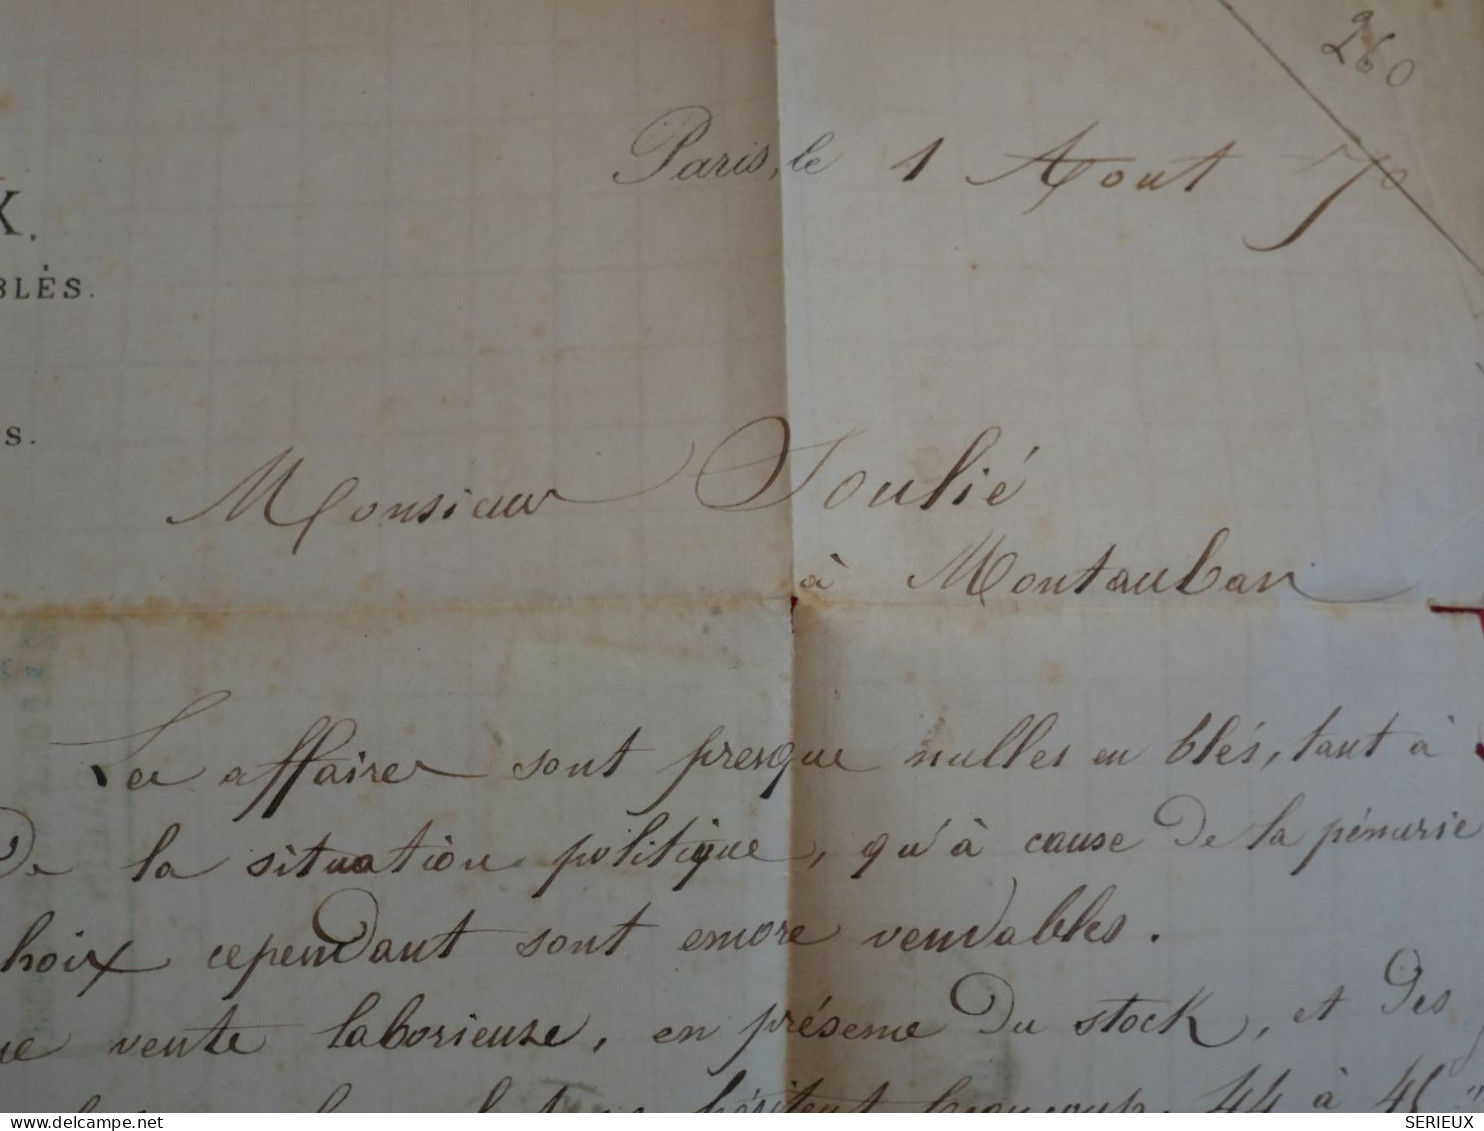 260
Paris, le 1 Aout 70
X.
BLÉS.
S.
Monsieur Soulié
à Montauban
Les affaires sont presque nulles en blés, tant à
De la situation politique, qu'à cause De la pénurie
hoix cependant sont encore vendables.
ue vente laborieuse, en présence Du stock, et Des
hésitent beaucoup. 44 à 45
SERIEUX